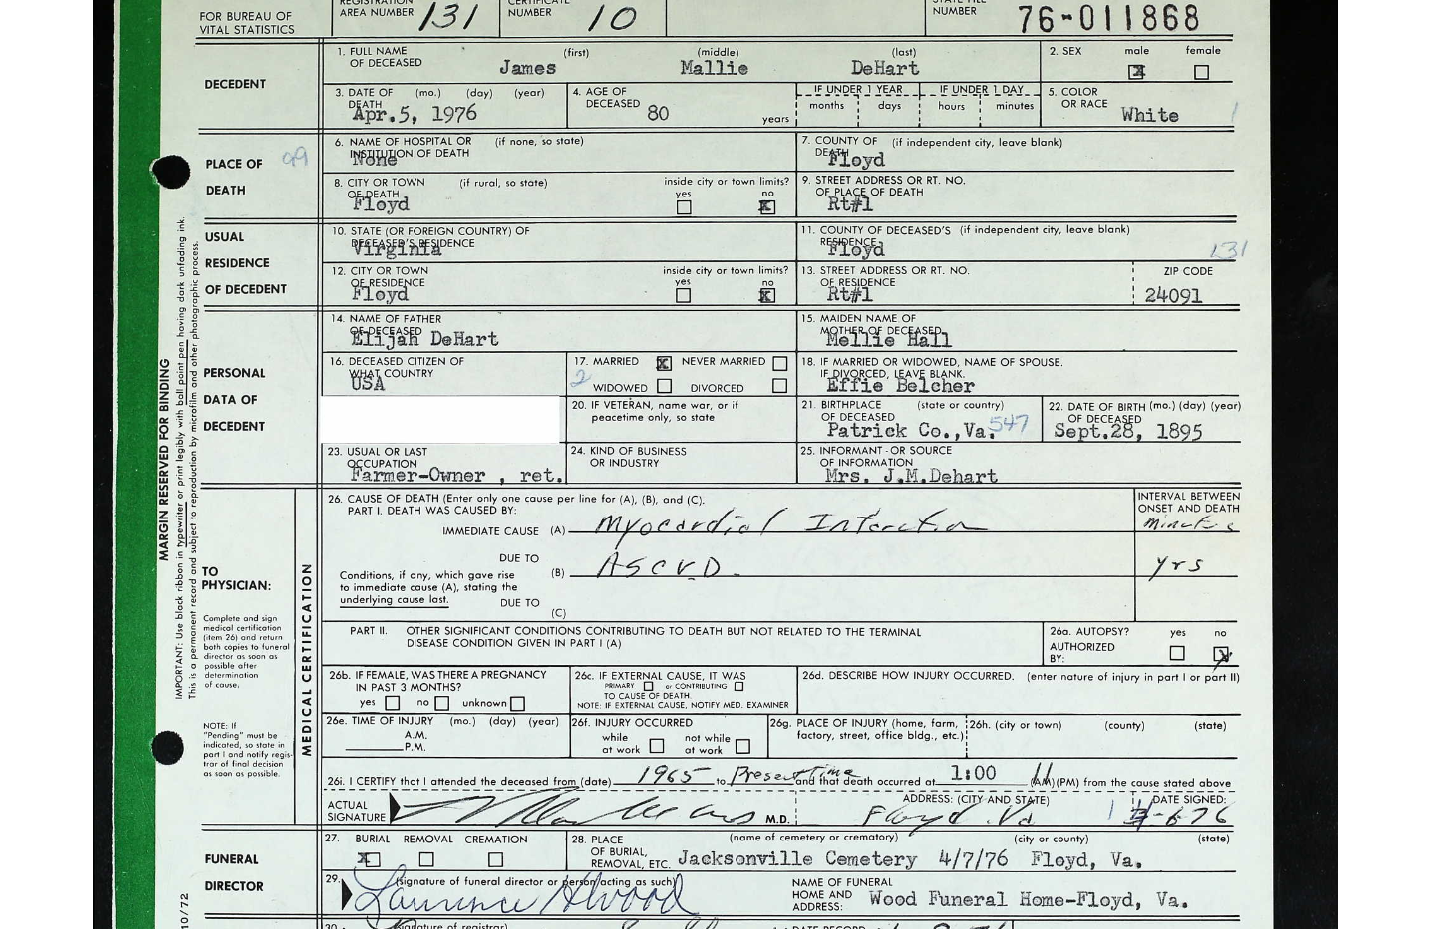 FOR BUREAU OF
VITAL STATISTICS
AREA NUMBER 131
NUMBER 10
NUMBER 76-011868
DECEDENT
1. FULL NAME OF DECEASED (first) (middle) (last)
James Mallie DeHart
2. SEX male female
X
3. DATE OF DEATH (mo.) (day) (year)
Apr.5, 1976
4. AGE OF DECEASED 80 years
IF UNDER 1 YEAR IF UNDER 1 DAY
months days hours minutes
5. COLOR OR RACE
White
PLACE OF DEATH
6. NAME OF HOSPITAL OR INSTITUTION OF DEATH (if none, so state)
None
7. COUNTY OF DEATH (if independent city, leave blank)
Floyd
8. CITY OR TOWN OF DEATH (if rural, so state)
Floyd
inside city or town limits?
yes no
X
9. STREET ADDRESS OR RT. NO. OF PLACE OF DEATH
Rt#1
USUAL RESIDENCE OF DECEDENT
10. STATE (OR FOREIGN COUNTRY) OF DECEASED'S RESIDENCE
Virginia
11. COUNTY OF DECEASED'S RESIDENCE (if independent city, leave blank)
Floyd
131
12. CITY OR TOWN OF RESIDENCE
Floyd
inside city or town limits?
yes no
X
13. STREET ADDRESS OR RT. NO. OF RESIDENCE
Rt#1
ZIP CODE
24091
PERSONAL DATA OF DECEDENT
14. NAME OF FATHER OF DECEASED
Elijah DeHart
15. MAIDEN NAME OF MOTHER OF DECEASED
Mellie Hall
16. DECEASED CITIZEN OF WHAT COUNTRY
USA
17. MARRIED X NEVER MARRIED
2
WIDOWED DIVORCED
18. IF MARRIED OR WIDOWED, NAME OF SPOUSE. IF DIVORCED, LEAVE BLANK.
Effie Belcher
20. IF VETERAN, name war, or if
peacetime only, so state
21. BIRTHPLACE OF DECEASED (state or country)
Patrick Co.,Va. 547
22. DATE OF BIRTH (mo.) (day) (year) OF DECEASED
Sept.28, 1895
23. USUAL OR LAST OCCUPATION
Farmer-Owner , ret.
24. KIND OF BUSINESS
OR INDUSTRY
25. INFORMANT-OR SOURCE OF INFORMATION
Mrs. J.M.Dehart
MARGIN RESERVED FOR BINDING
IMPORTANT: Use black ribbon in typewriter or print legibly with ball point pen having dark unfading ink.
This is a permanent record and subject to reproduction by microfilm and other photographic process.
TO
PHYSICIAN:
Complete and sign
medical certification
(item 26) and return
both copies to funeral
director as soon as
possible after
determination
of cause.
NOTE: If
"Pending" must be
indicated, so state in
part I and notify regis-
trar of final decision
as soon as possible.
MEDICAL CERTIFICATION
26. CAUSE OF DEATH (Enter only one cause per line for (A), (B), and (C).
PART I. DEATH WAS CAUSED BY:
INTERVAL BETWEEN
ONSET AND DEATH
IMMEDIATE CAUSE (A) Myocardial Infarction minutes
DUE TO
(B) ASCVD yrs
Conditions, if any, which gave rise
to immediate cause (A), stating the
underlying cause last.
DUE TO
(C)
PART II. OTHER SIGNIFICANT CONDITIONS CONTRIBUTING TO DEATH BUT NOT RELATED TO THE TERMINAL
DISEASE CONDITION GIVEN IN PART I (A)
26a. AUTOPSY? yes no
AUTHORIZED
BY:
26b. IF FEMALE, WAS THERE A PREGNANCY
IN PAST 3 MONTHS?
yes no unknown
26c. IF EXTERNAL CAUSE, IT WAS
PRIMARY or CONTRIBUTING
TO CAUSE OF DEATH.
NOTE: IF EXTERNAL CAUSE, NOTIFY MED. EXAMINER
26d. DESCRIBE HOW INJURY OCCURRED. (enter nature of injury in part I or part II)
26e. TIME OF INJURY (mo.) (day) (year)
A.M.
P.M.
26f. INJURY OCCURRED
while at work not while at work
26g. PLACE OF INJURY (home, farm,
factory, street, office bldg., etc.)
26h. (city or town) (county) (state)
26i. I CERTIFY that I attended the deceased from (date) 1965 to Present time and that death occurred at 1:00 (AM) (PM) from the cause stated above
ACTUAL
SIGNATURE M.D.
ADDRESS: (CITY AND STATE)
Floyd Va
DATE SIGNED:
FUNERAL
DIRECTOR
27. BURIAL REMOVAL CREMATION
X
28. PLACE OF BURIAL, REMOVAL, ETC.
(name of cemetery or crematory) (city or county) (state)
Jacksonville Cemetery 4/7/76 Floyd, Va.
29. (signature of funeral director or person acting as such)
NAME OF FUNERAL
HOME AND
ADDRESS: Wood Funeral Home-Floyd, Va.
10/72
30. (signature of registrar)